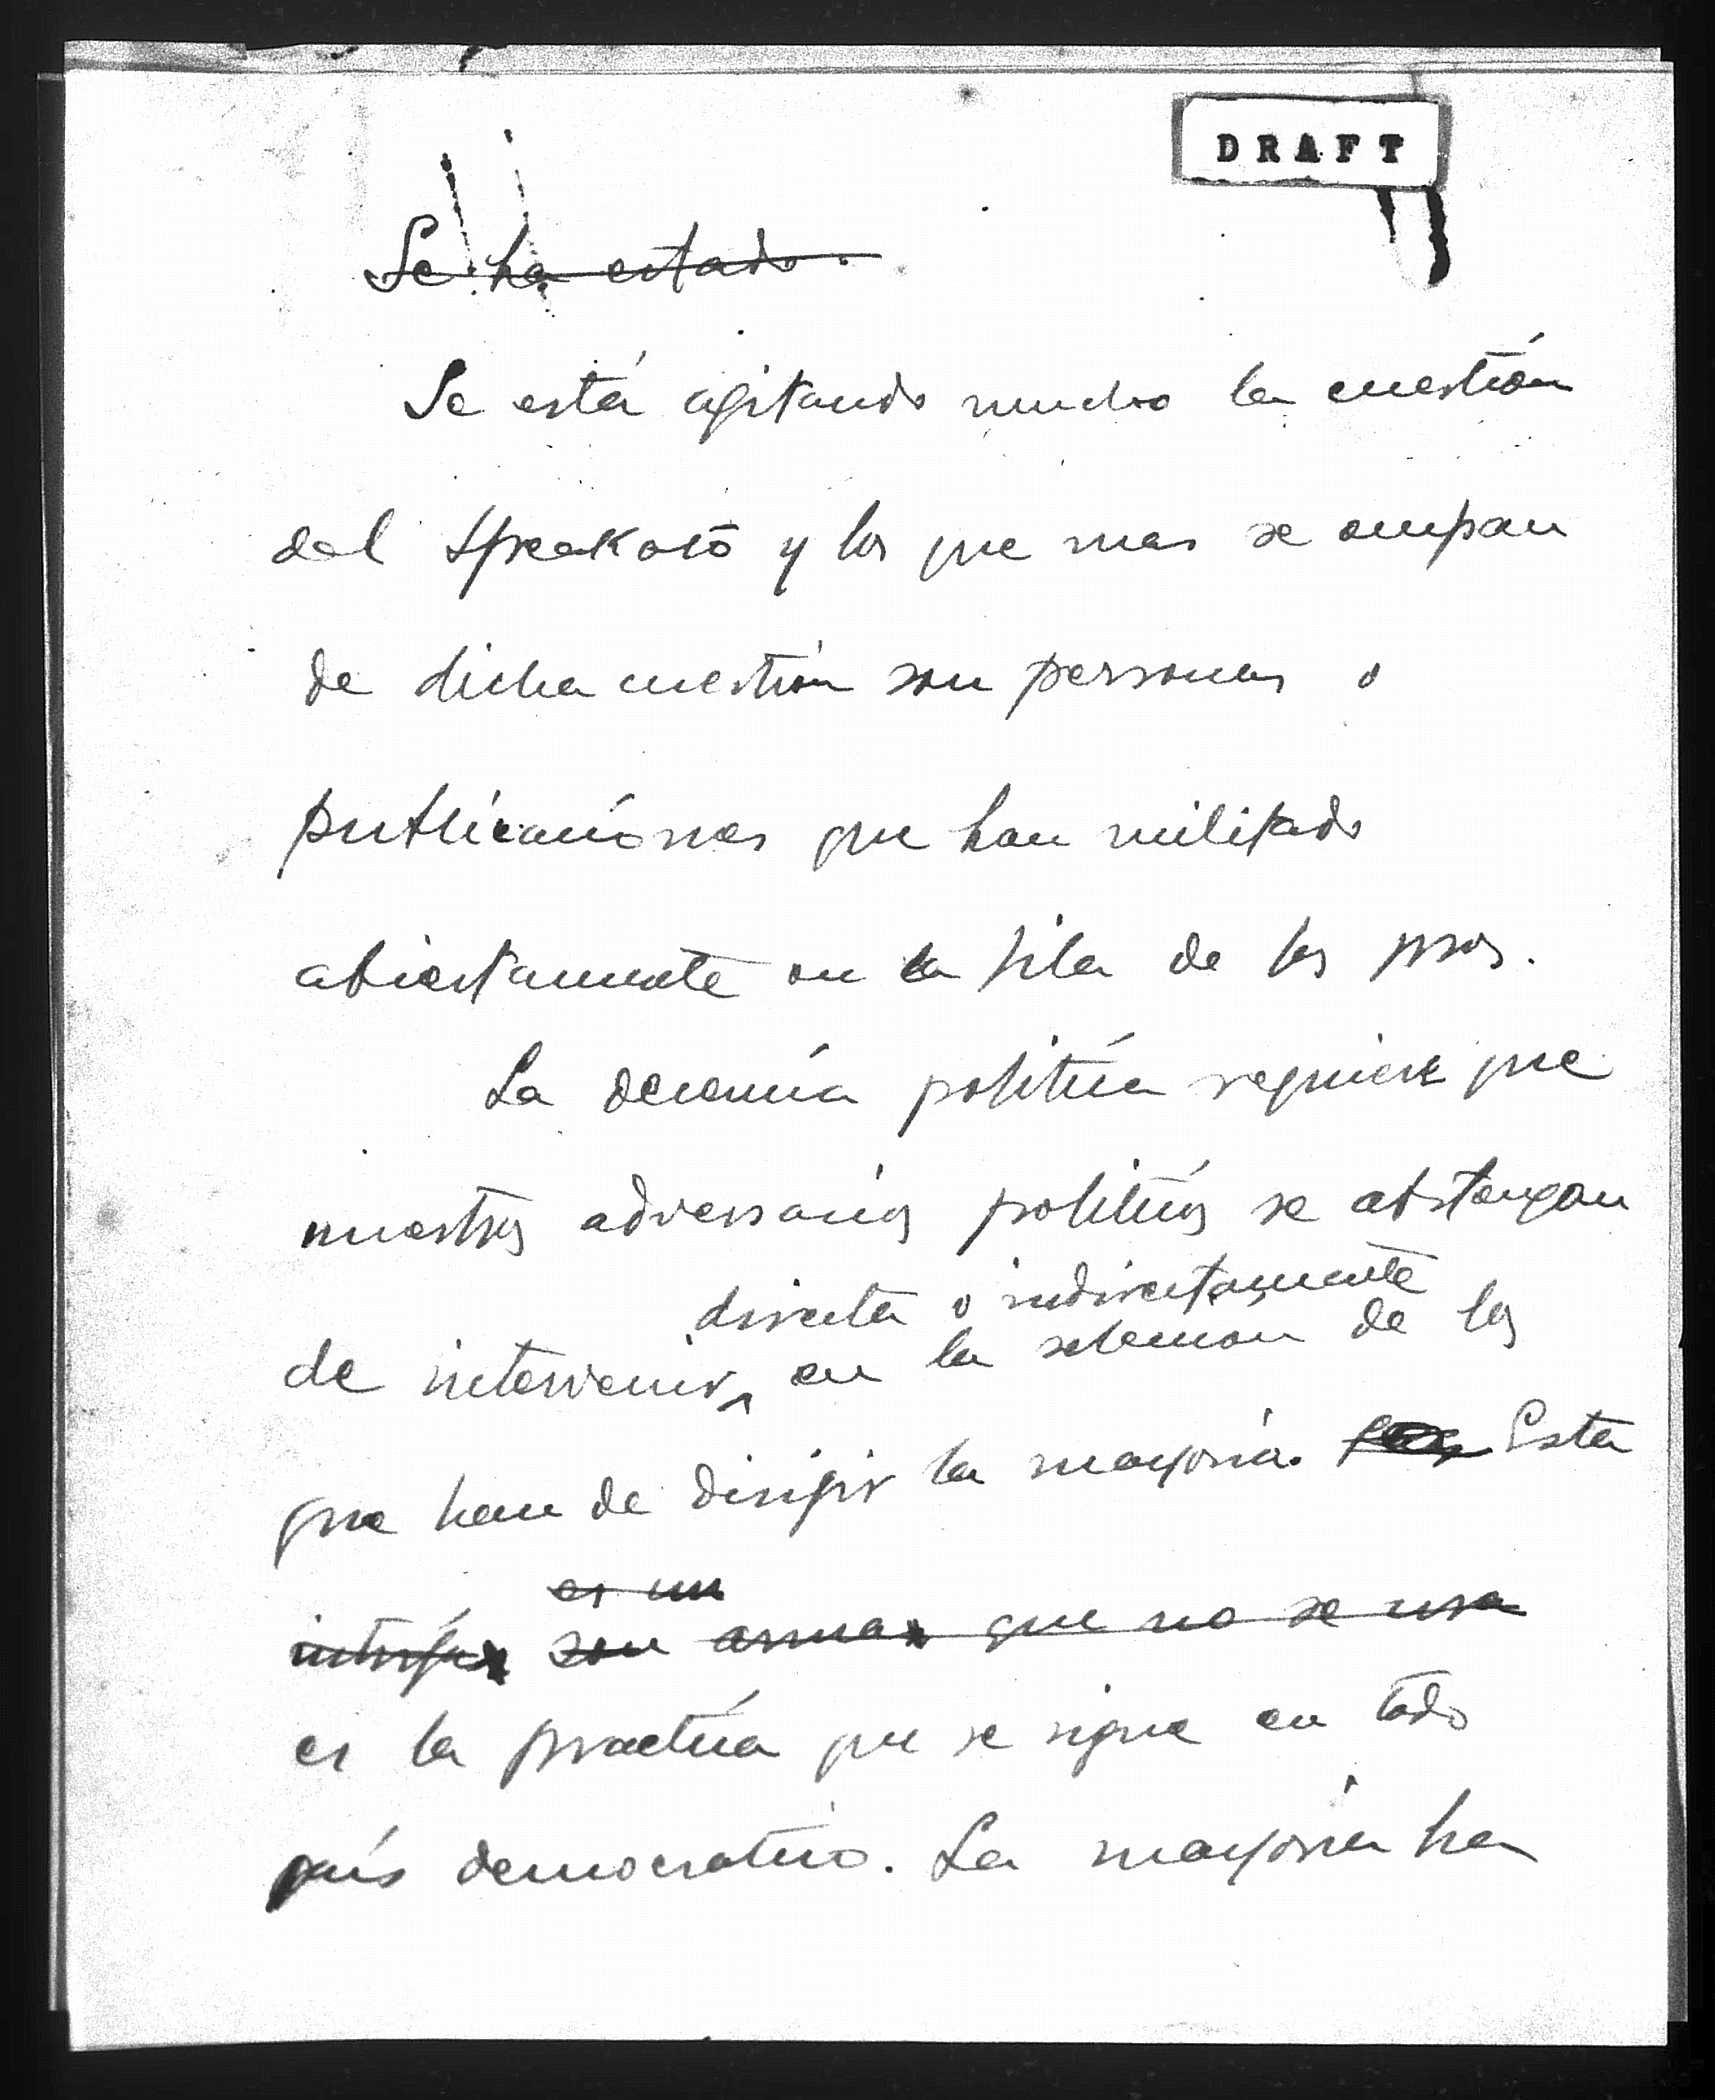 DRAFT
Se ha estado.
Se está agitando mucho la cuestión
del Speakato y los que mas se ocupan
de dicha cuestión son personas o
publicaciónes que han militado
abiertamente en la fila de los pros.
La decencia política requiere que
nuestros adversarios políticos se abstengan
directa o indirectamente
de intervenir ^ en la seleccion de los
que han de dirigir la mayoría. Esta
es un
intriga son armas que no se usa
es la practica que se sigue en todo
país democratico. La mayoria ha